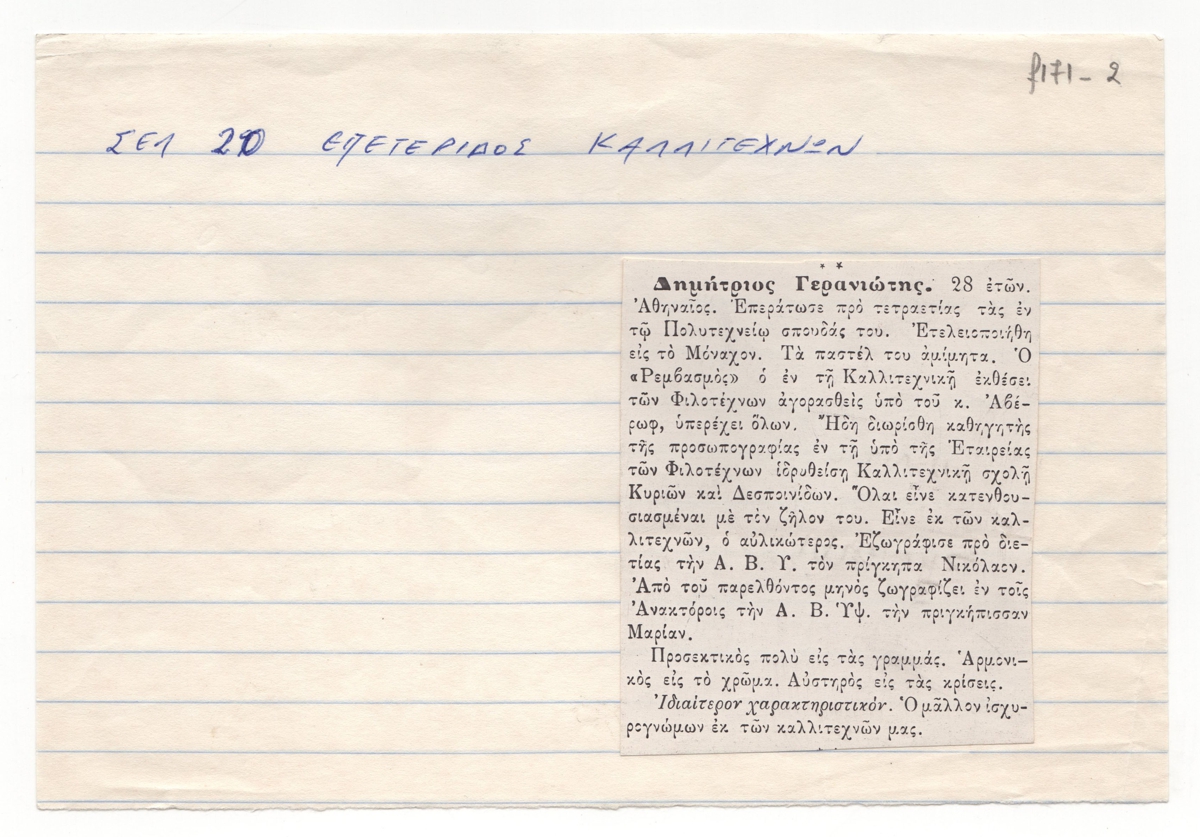 f171-2
ΣΕΛ 20 ΕΠΕΤΕΡΙΔΟΣ ΚΑΛΛΙΤΕΧΝΩΝ
* *
Δημήτριος Γερανιώτης. 28 ἐτῶν.
Ἀθηναῖος. Ἐπεράτωσε πρὸ τετραετίας τὰς ἐν
τῷ Πολυτεχνείῳ σπουδάς του. Ἐτελειοποιήθη
εἰς τὸ Μόναχον. Τὰ παστέλ του ἀμίμητα. Ὁ
«Ρεμβασμὸς» ὁ ἐν τῇ Καλλιτεχνικῇ ἐκθέσει
τῶν Φιλοτέχνων ἀγορασθεὶς ὑπὸ τοῦ κ. Ἀβέ-
ρωφ, ὑπερέχει ὅλων. Ἤδη διωρίσθη καθηγητὴς
τῆς προσωπογραφίας ἐν τῇ ὑπὸ τῆς Ἑταιρείας
τῶν Φιλοτέχνων ἱδρυθείσῃ Καλλιτεχνικῇ σχολῇ
Κυριῶν καὶ Δεσποινίδων. Ὅλαι εἶνε κατενθου-
σιασμέναι μὲ τὸν ζῆλον του. Εἶνε ἐκ τῶν καλ-
λιτεχνῶν, ὁ αὐλικώτερος. Ἐζωγράφισε πρὸ διε-
τίας τὴν Α. Β. Υ. τὸν πρίγκηπα Νικόλαον.
Ἀπὸ τοῦ παρελθόντος μηνὸς ζωγραφίζει ἐν τοῖς
Ἀνακτόροις τὴν Α. Β. Ὑψ. τὴν πριγκήπισσαν
Μαρίαν.
Προσεκτικὸς πολὺ εἰς τὰς γραμμάς. Ἁρμονι-
κὸς εἰς τὸ χρῶμα. Αὐστηρὸς εἰς τὰς κρίσεις.
Ἰδιαίτερον χαρακτηριστικόν. Ὁ μᾶλλον ἰσχυ-
ρογνώμων ἐκ τῶν καλλιτεχνῶν μας.